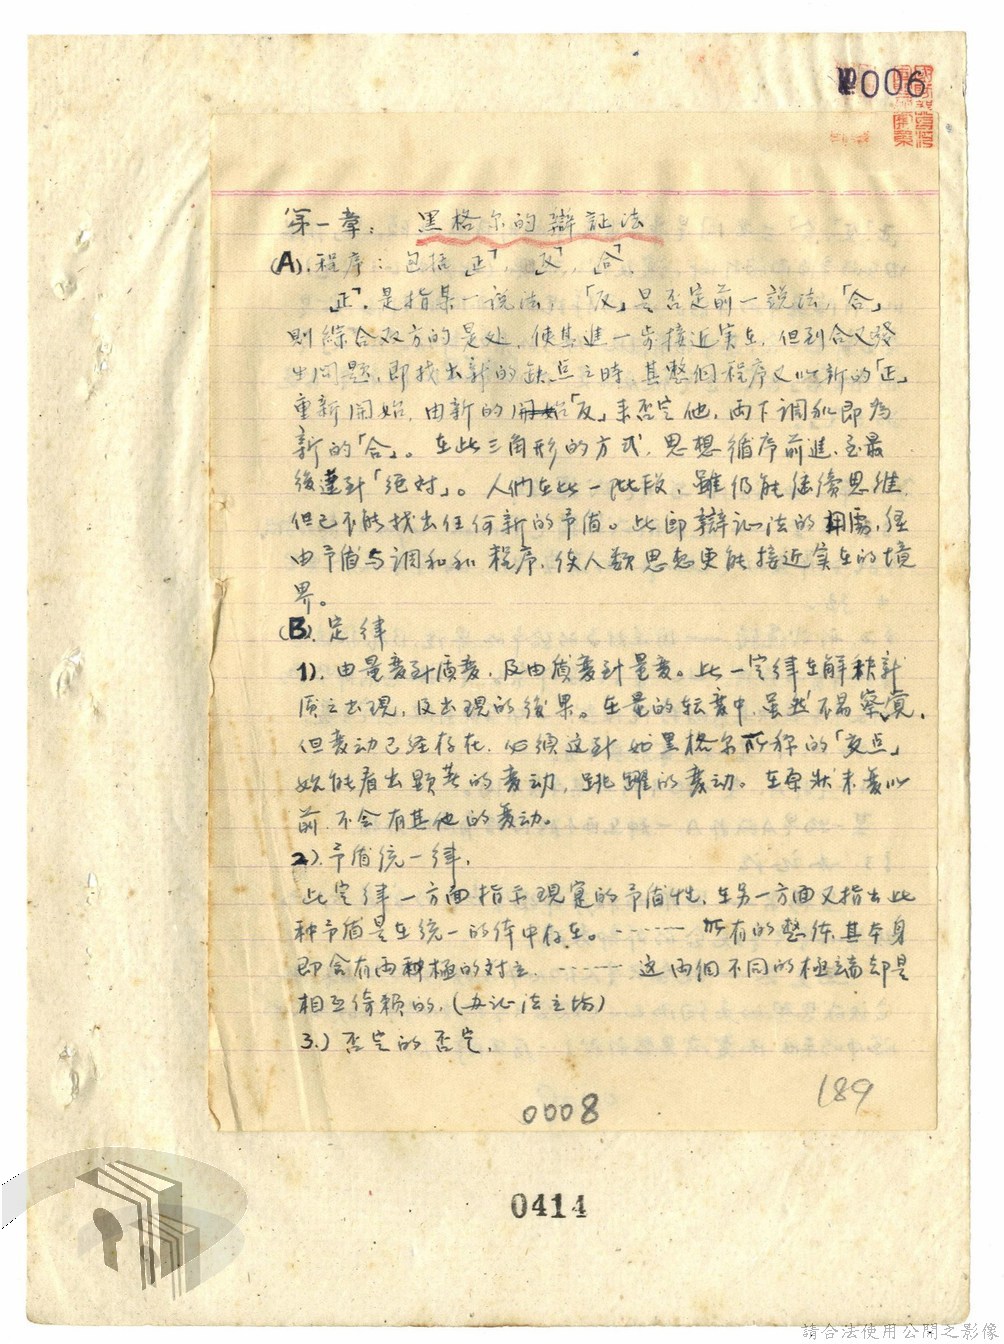 006
第一章：黑格尔的辯証法
(A).程序：包括「正」，「反」，「合」，
「正」，是指某一説法，「反」是否定前一説法，「合」
則綜合双方的是处，使其進一步接近实在，但到合又發
生问题，即找出新的缺点之時，其整個程序又以新的「正」
重新開始，由新的「反」来否定他，两下调和即為
新的「合」。在此三角形的方式，思想循序前進，至最
後達到「絕对」。人們在此一阶段，雖仍能継續思維，
但已不能找出任何新的矛盾。此即辯証法的用處，经
由矛盾与调和和程序，使人類思想更能接近实在的境
界。
(B).定律
1).由量变到质变，及由质变到量变。此一定律在解釈新
质之出現，及出現的後果。在量的転变中，虽然不易察覚，
但变动已经存在，必须达到如黑格尔所称的「交点」
始能看出顕著的变动，跳躍的变动。在原狀未变以
前，不会有其他的变动。
2).矛盾统一律，
此定律一方面指示現寔的矛盾性，在另一方面又指出此
种矛盾是在统一的体中存在。…… 所有的整体，其本身
即含有两种極的对立，…… 这两個不同的極端却是
相互倚賴的，(办证法立场)
3.)否定的否定，
189
0008
0414
請合法使用公開之影像